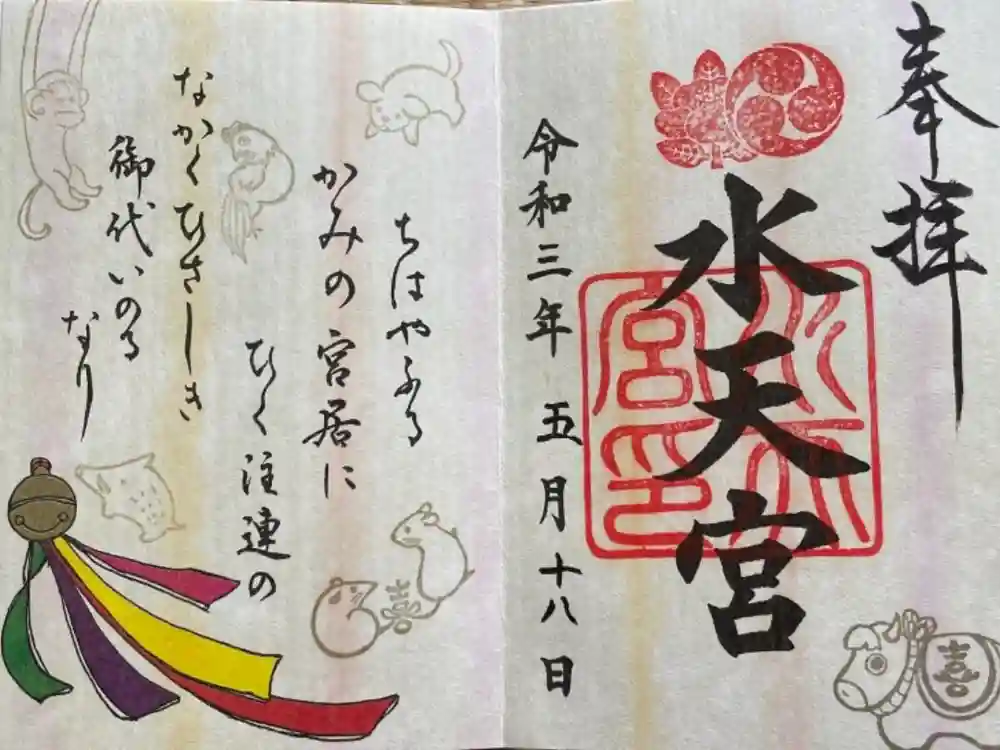 奉拝
水天宮
水天宮印
令和三年五月十八日
ちはやふる
かみの宮居に
ひく注連の
なかくひさしき
御代いのる
なり
喜
喜